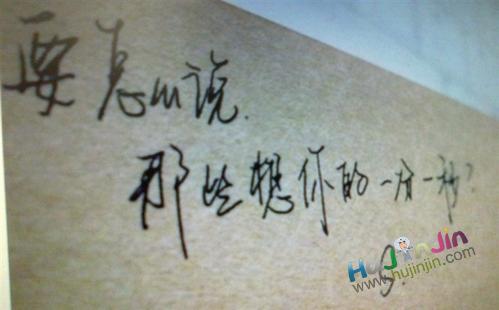 要怎么说.
那些想你的一分一秒?
HuJinJin
www.hujinjin.com